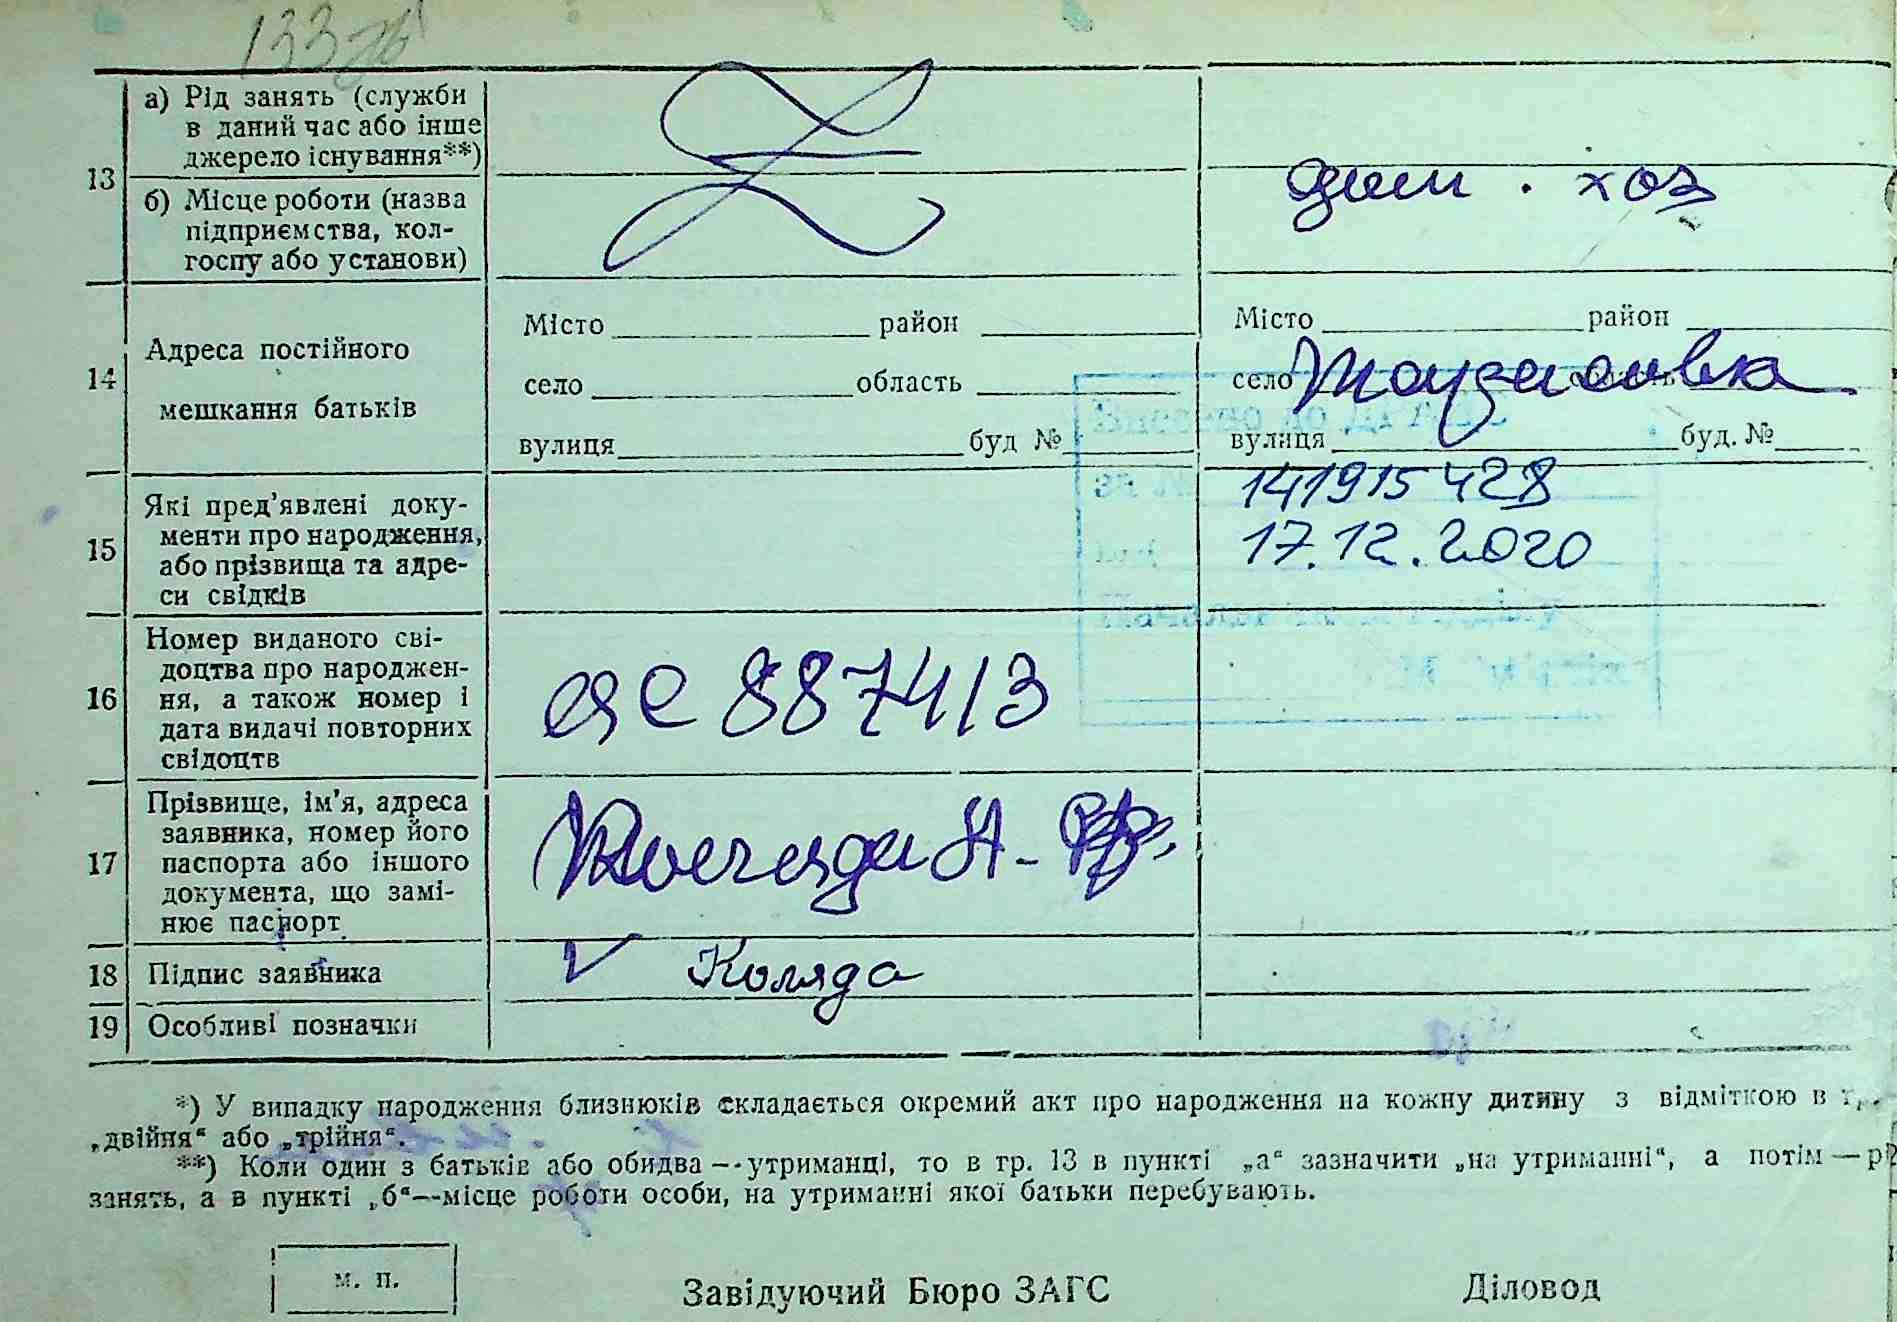 133
13
а) Рід занять (служби
в даний час або інше
джерело існування**)
б) Місце роботи (назва
підприємства, кол-
госпу або установи)
дом. хоз
14
Адреса постійного
мешкання батьків
Місто район
село область
вулиця буд №
Місто район
село
вулиця буд. №
15
Які пред’явлені доку-
менти про народження,
або прізвища та адре-
си свідків
141915428
17.12.2020
16
Номер виданого сві-
доцтва про народжен-
ня, а також номер і
дата видачі повторних
свідоцтв
887413
17
Прізвище, ім’я, адреса
заявника, номер його
паспорта або іншого
документа, що замі-
нює паспорт
18
Підпис заявника
V Коляда
19
Особливі позначки
*) У випадку народження близнюків складається окремий акт про народження на кожну дитину з відміткою в
„двійня“ або „трійня“.
**) Коли один з батьків або обидва — утриманці, то в гр. 13 в пункті „а“ зазначити „на утриманні“, а потім — рі
занять, а в пункті „б“—місце роботи особи, на утриманні якої батьки перебувають.
м. п.
Завідуючий Бюро ЗАГС
Діловод